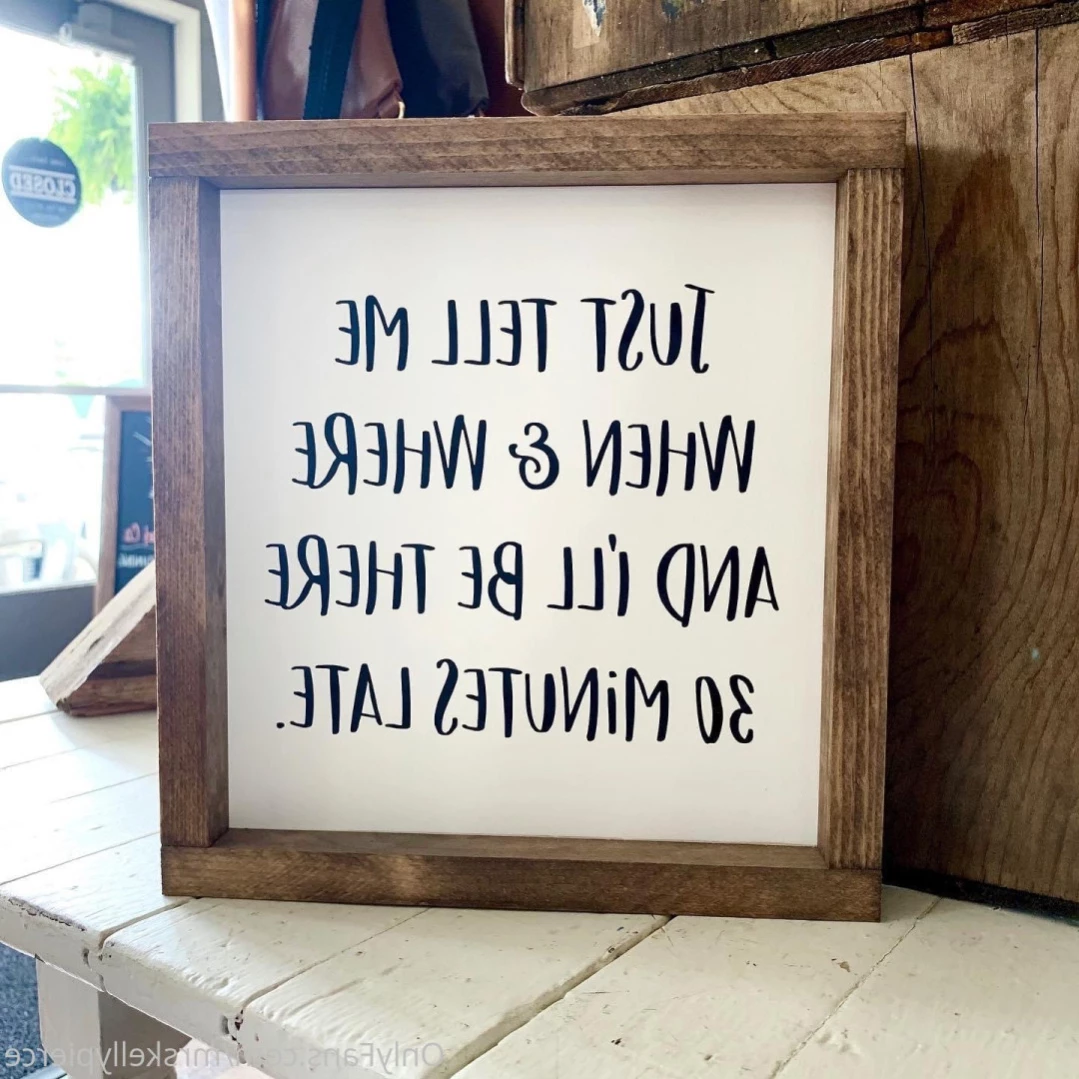 CLOSED
JUST TELL ME
WHEN & WHERE
AND I'LL BE THERE
30 MINUTES LATE.
OnlyFans.com/mrskellypierce